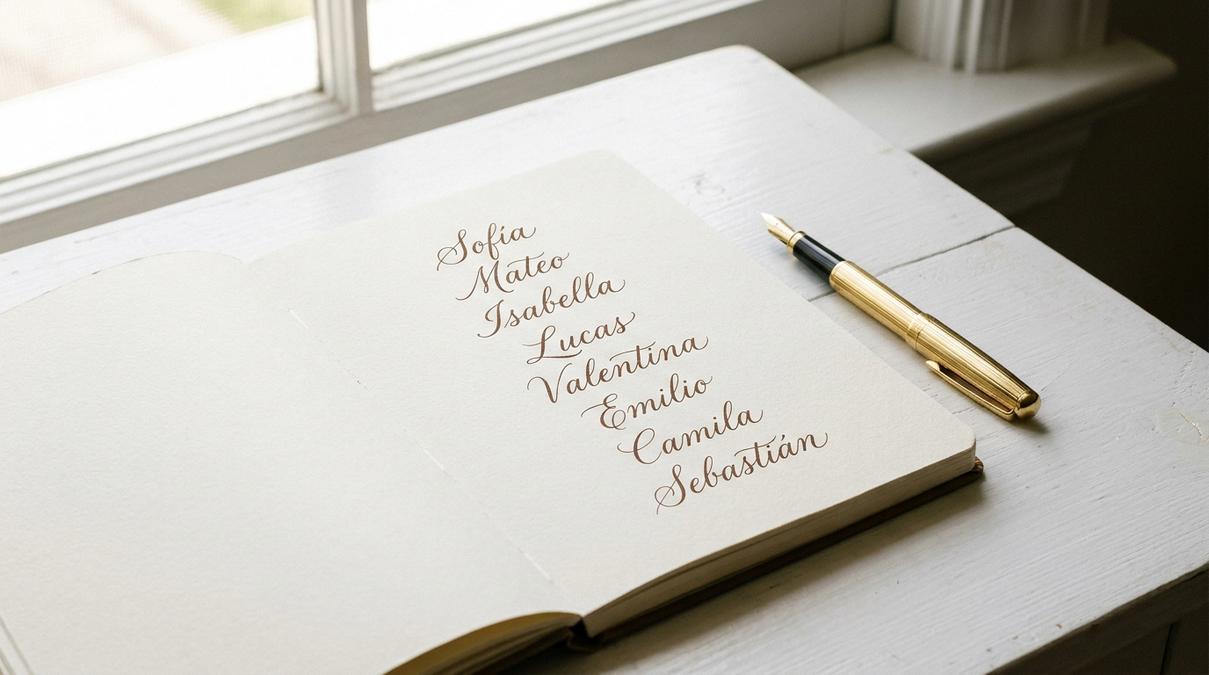 Sofía
Mateo
Isabella
Lucas
Valentina
Emilio
Camila
Sebastián